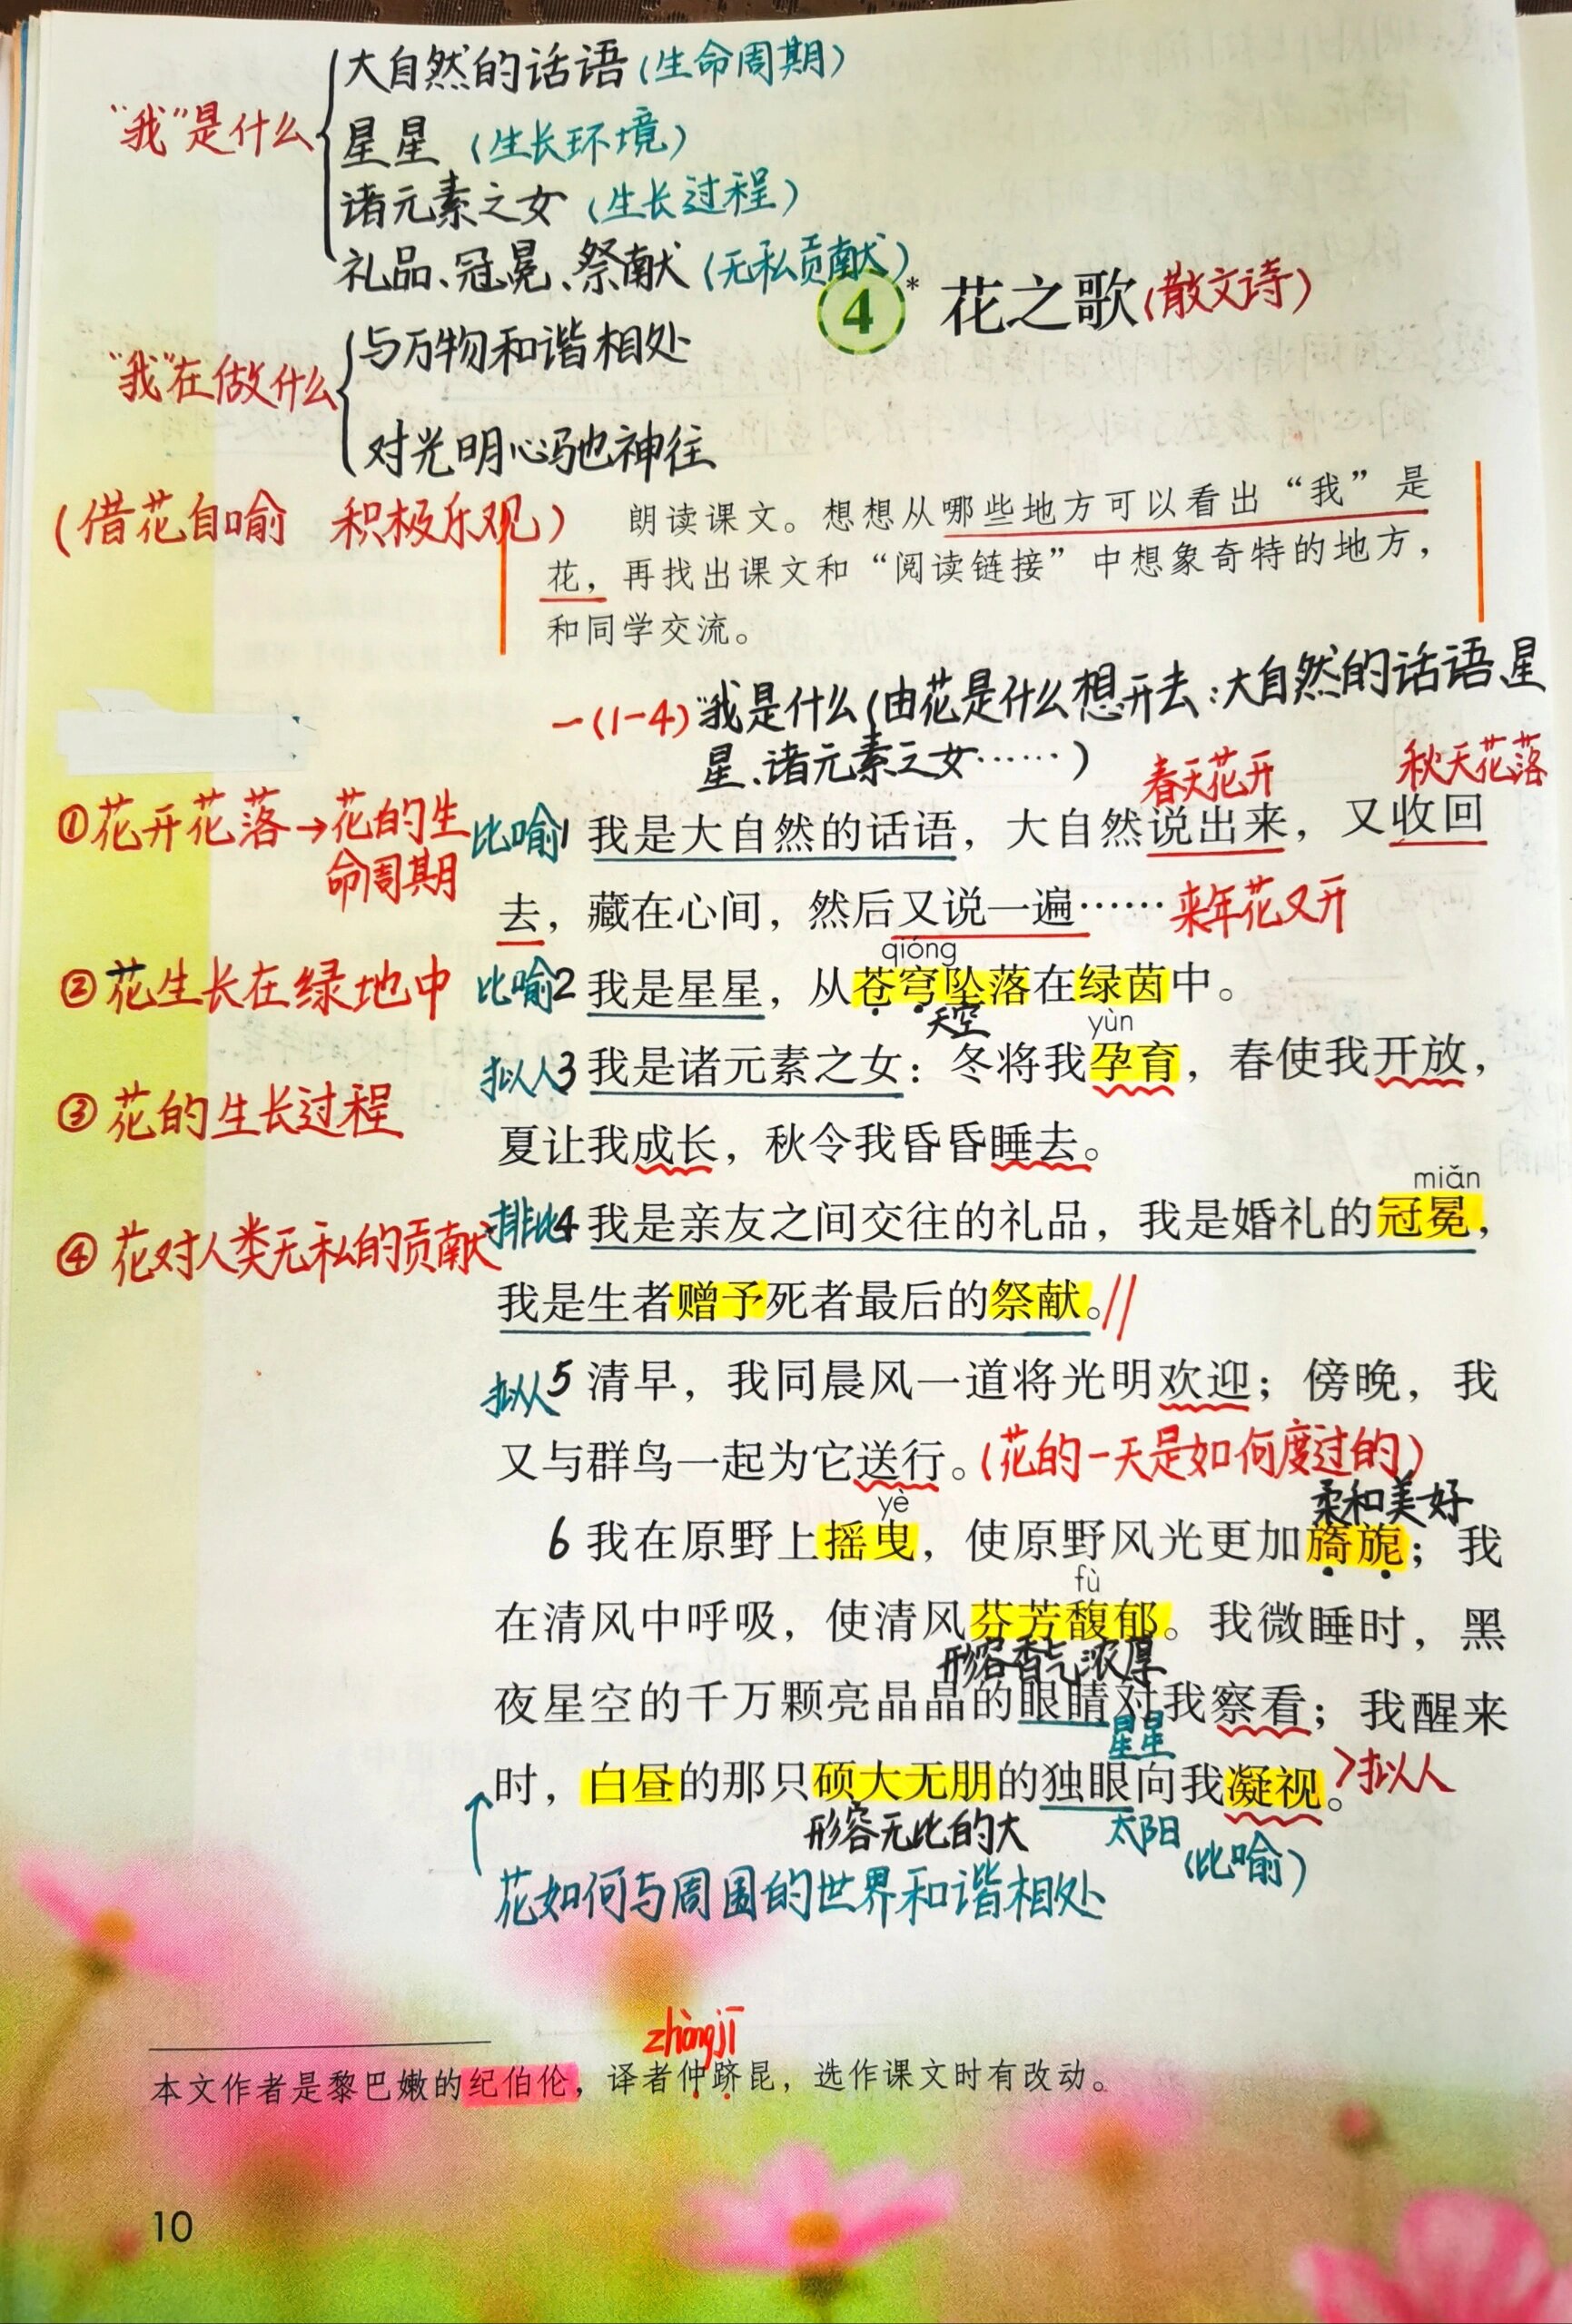 大自然的话语(生命周期)
“我”是什么
星星 (生长环境)
诸元素之女 (生长过程)
礼品、冠冕、祭献 (无私贡献)
4* 花之歌(散文诗)
与万物和谐相处
“我”在做什么
对光明心驰神往
(借花自喻 积极乐观)
朗读课文。想想从哪些地方可以看出“我”是
花，再找出课文和“阅读链接”中想象奇特的地方，
和同学交流。
一(1-4)“我是什么(由花是什么想开去:大自然的话语、星
星、诸元素之女……)
春天花开 秋天花落
①花开花落→花的生
命周期
比喻1 我是大自然的话语，大自然说出来，又收回
去，藏在心间，然后又说一遍…… 来年花又开
qióng
②花生长在绿地中
比喻2 我是星星，从苍穹坠落在绿茵中。
天空 yùn
拟人3 我是诸元素之女：冬将我孕育，春使我开放，
③花的生长过程
夏让我成长，秋令我昏昏睡去。
miǎn
排比4 我是亲友之间交往的礼品，我是婚礼的冠冕，
④花对人类无私的贡献
我是生者赠予死者最后的祭献。//
拟人5 清早，我同晨风一道将光明欢迎；傍晚，我
又与群鸟一起为它送行。(花的一天是如何度过的)
yè 柔和美好
6 我在原野上摇曳，使原野风光更加旖旎；我
fù
在清风中呼吸，使清风芬芳馥郁。我微睡时，黑
形容香气浓厚
夜星空的千万颗亮晶晶的眼睛对我察看；我醒来
星星
时，白昼的那只硕大无朋的独眼向我凝视。>拟人
形容无比的大 太阳 (比喻)
花如何与周围的世界和谐相处
zhòngjī
本文作者是黎巴嫩的纪伯伦，译者仲跻昆，选作课文时有改动。
10